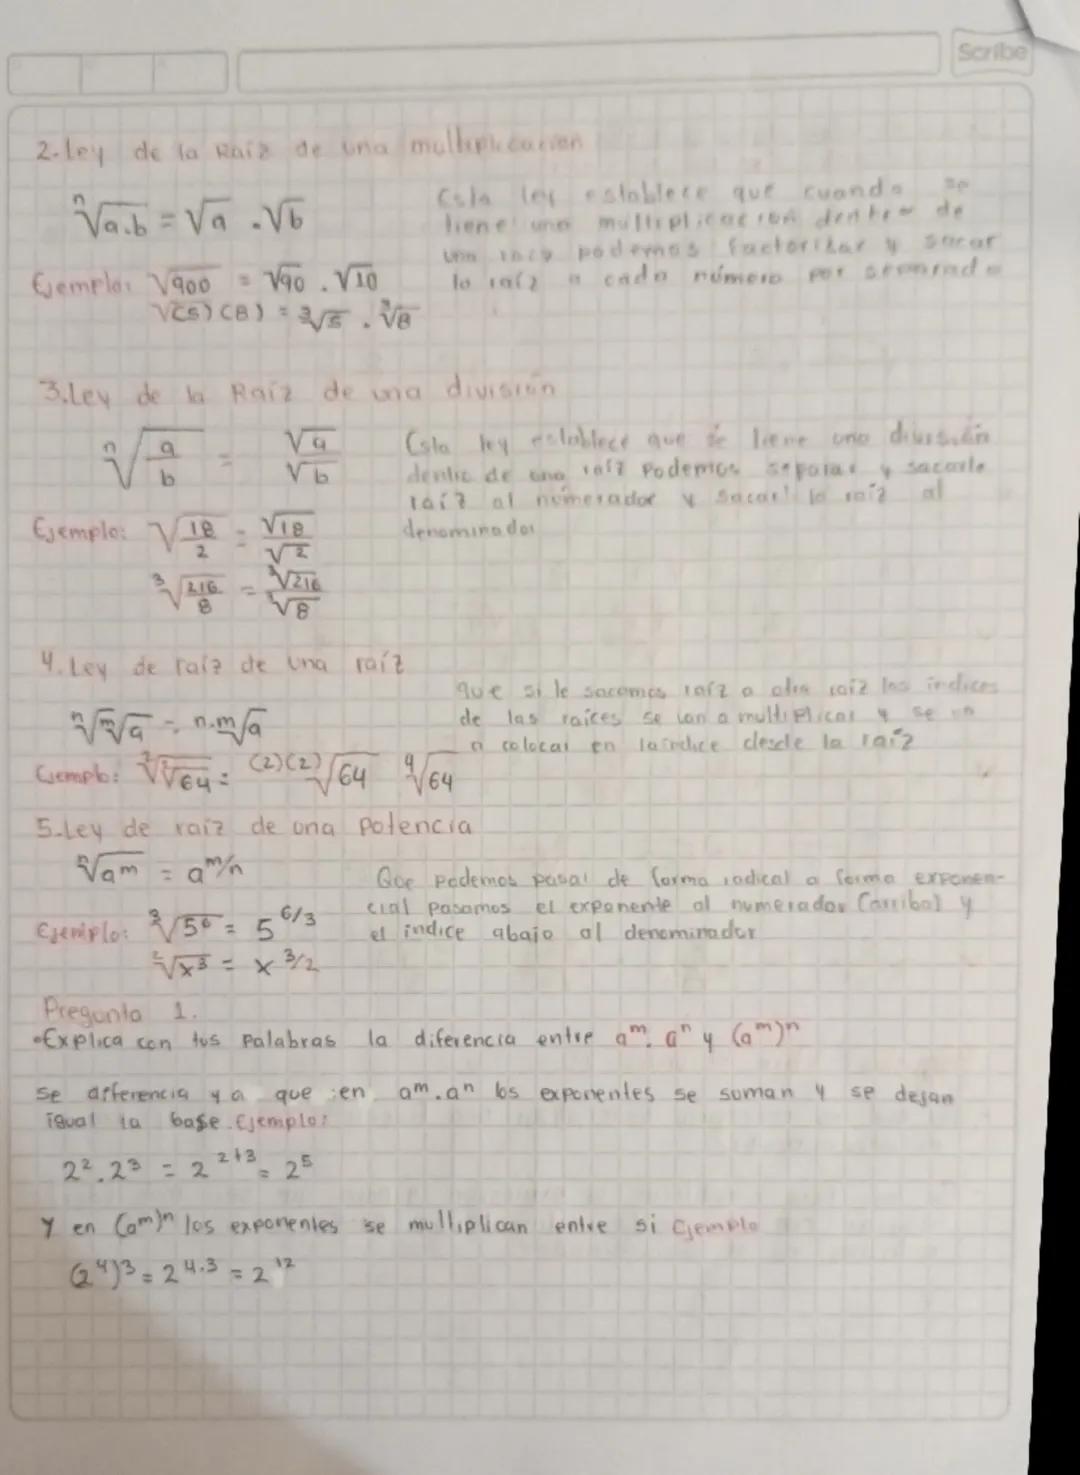 Scribe
2-Ley de la Raíz de una multiplicacion
ⁿ√a.b = √a . √b
Esta ley establece que cuando se
tiene una multiplicación dentro de
una raíz podemos factorizar y sacar
la raíz a cada número por separado
Ejemplo: √900 = √90 . √10
√(5)(8) = ³√5 . ³√8
3.Ley de la Raíz de una división
ⁿ√a/b = √a/√b
Esta ley establece que se tiene una división
dentro de una raíz Podemos separar y sacarle
raíz al numerador y sacar la raíz al
denominador
Ejemplo: √18/2 = √18/√2
³√216/8 = ³√216/³√8
4. Ley de raíz de una raíz
ⁿ√ᵐ√a = n.m√a
que si le sacamos raíz a otra raíz los indices
de las raíces se van a multiplicar y se van
a colocar en la indice desde la raíz
Ejemplo: ²√²√64 = (2)(2)√64 ⁴√64
5-Ley de raíz de una Potencia
ⁿ√aᵐ = a^m/n
Que podemos pasar de forma radical a forma exponen-
cial pasamos el exponente al numerador (arriba) y
el índice abajo al denominador
Ejemplo: ³√5⁶ = 5^6/3
²√x³ = x^3/2
Pregunta 1.
•Explica con tus palabras la diferencia entre aᵐ. aⁿ y (aᵐ)ⁿ
se diferencia ya que en aᵐ.aⁿ los exponentes se suman y se dejan
igual la base. Ejemplo:
2².2³ = 2²⁺³ = 2⁵
Y en (aᵐ)ⁿ los exponentes se multiplican entre si Ejemplo
(2⁴)³ = 2⁴·³ = 2¹²